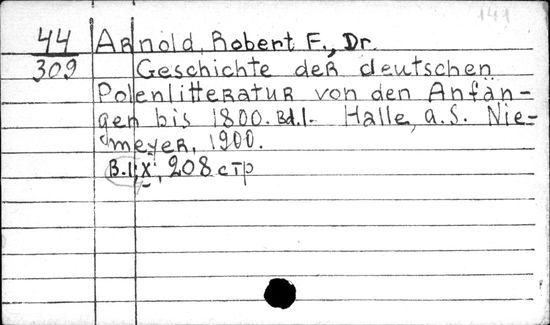 141
44 Arnold, Robert F., Dr.
309 Geschichte der deutschen
Polenlitteratur von den Anfän-
gen bis 1800. Bd.I. Halle, a.S. Nie-
meyer, 1900.
B.I, X, 208 стр